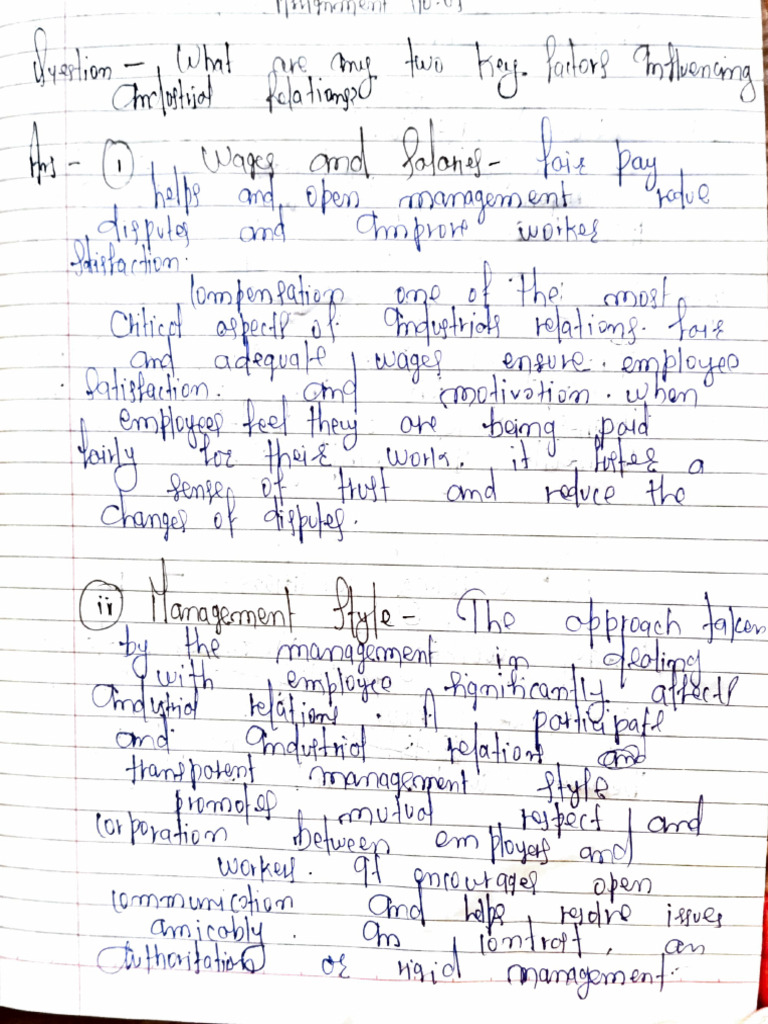 Assignment No. 03
Question - What are any two key factors influencing
industrial relations?
Ans - (i) Wages and Salaries - fair pay
helps and open management redue
disputes and improve worker
satisfaction.
Compensation one of the most
Critical aspects of industrials relations. fair
and adequate wages ensure employee
Satisfaction. and motivation. when
employees feel they are being paid
fairly for their work. it foster a
sense of trust and reduce the
changes of disputes.
(ii) Management Style - The approach taken
by the management in dealing
with employee significantly affects
industrial relations. A participate
and industrial relations
transparent management style
promotes mutual respect and
corporation between employers and
workers. It encourages open
communication and helps resolve issues
amicably. In contrast, an
authoritation or rigid management.